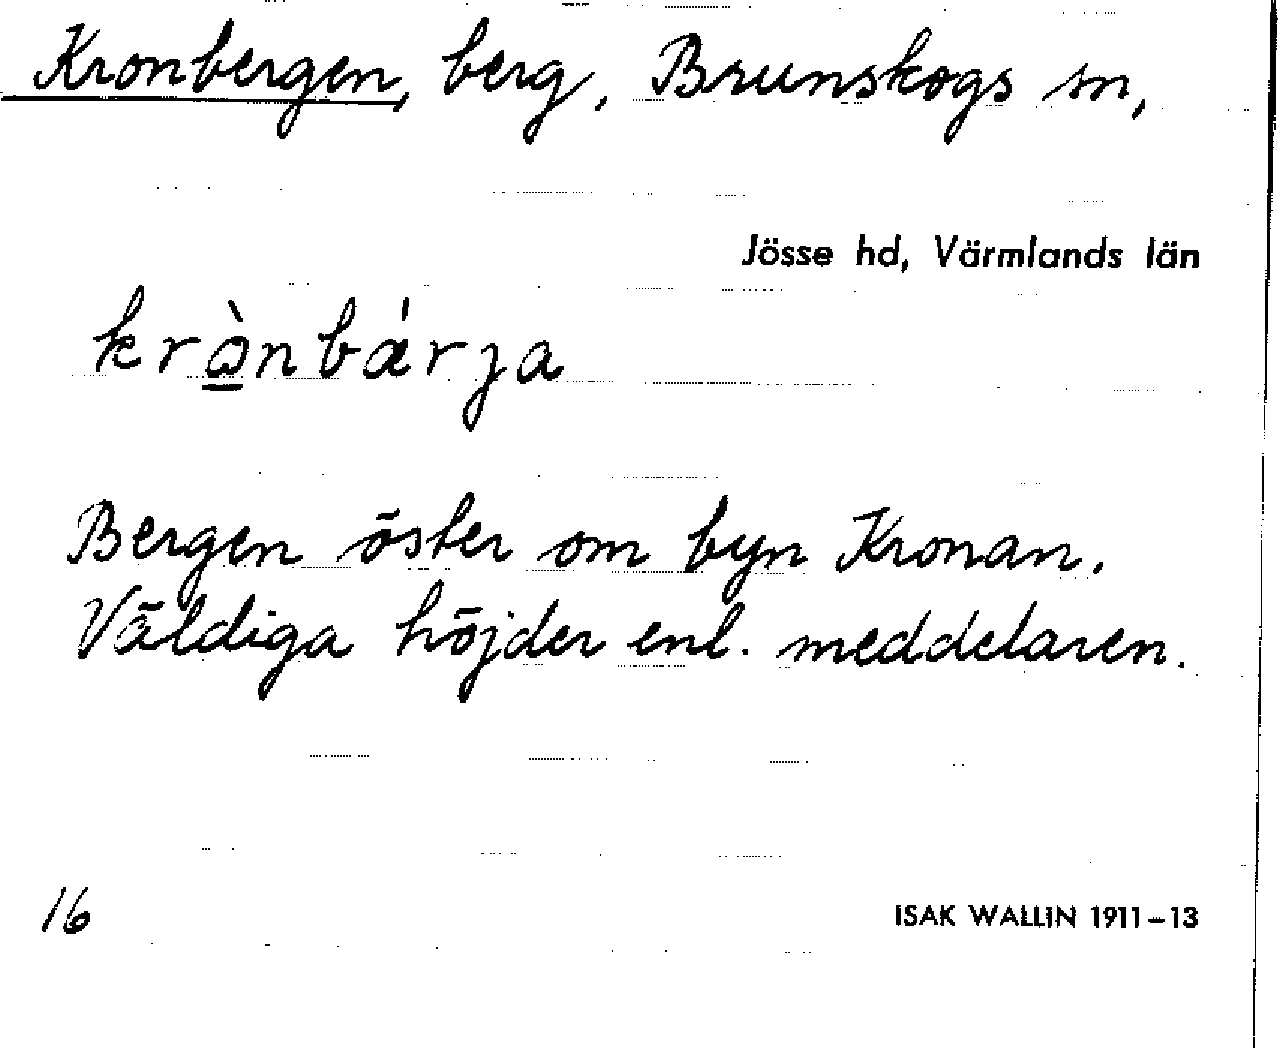 Kronbergen, berg, Brunskogs sn,
Jösse hd, Värmlands län
krò̲nbǽrja
Bergen öster om byn Kronan.
Väldiga höjder enl. meddelaren.
16
ISAK WALLIN 1911–13